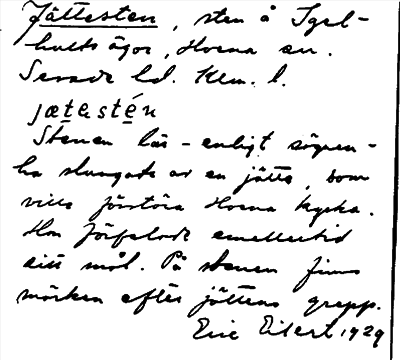 Jättesten, sten å Igel-
hults ägor, Hovena sn.
Sevede hd. Klm. l.
jætestén
Stenen lär – enligt sägnen –
ha slungats av en jätte, som
ville förstöra Hovena kyrka.
Han förfelade emellertid
sitt mål. På stenen finns
märken efter jättens grepp.
Eric Eilert 1929